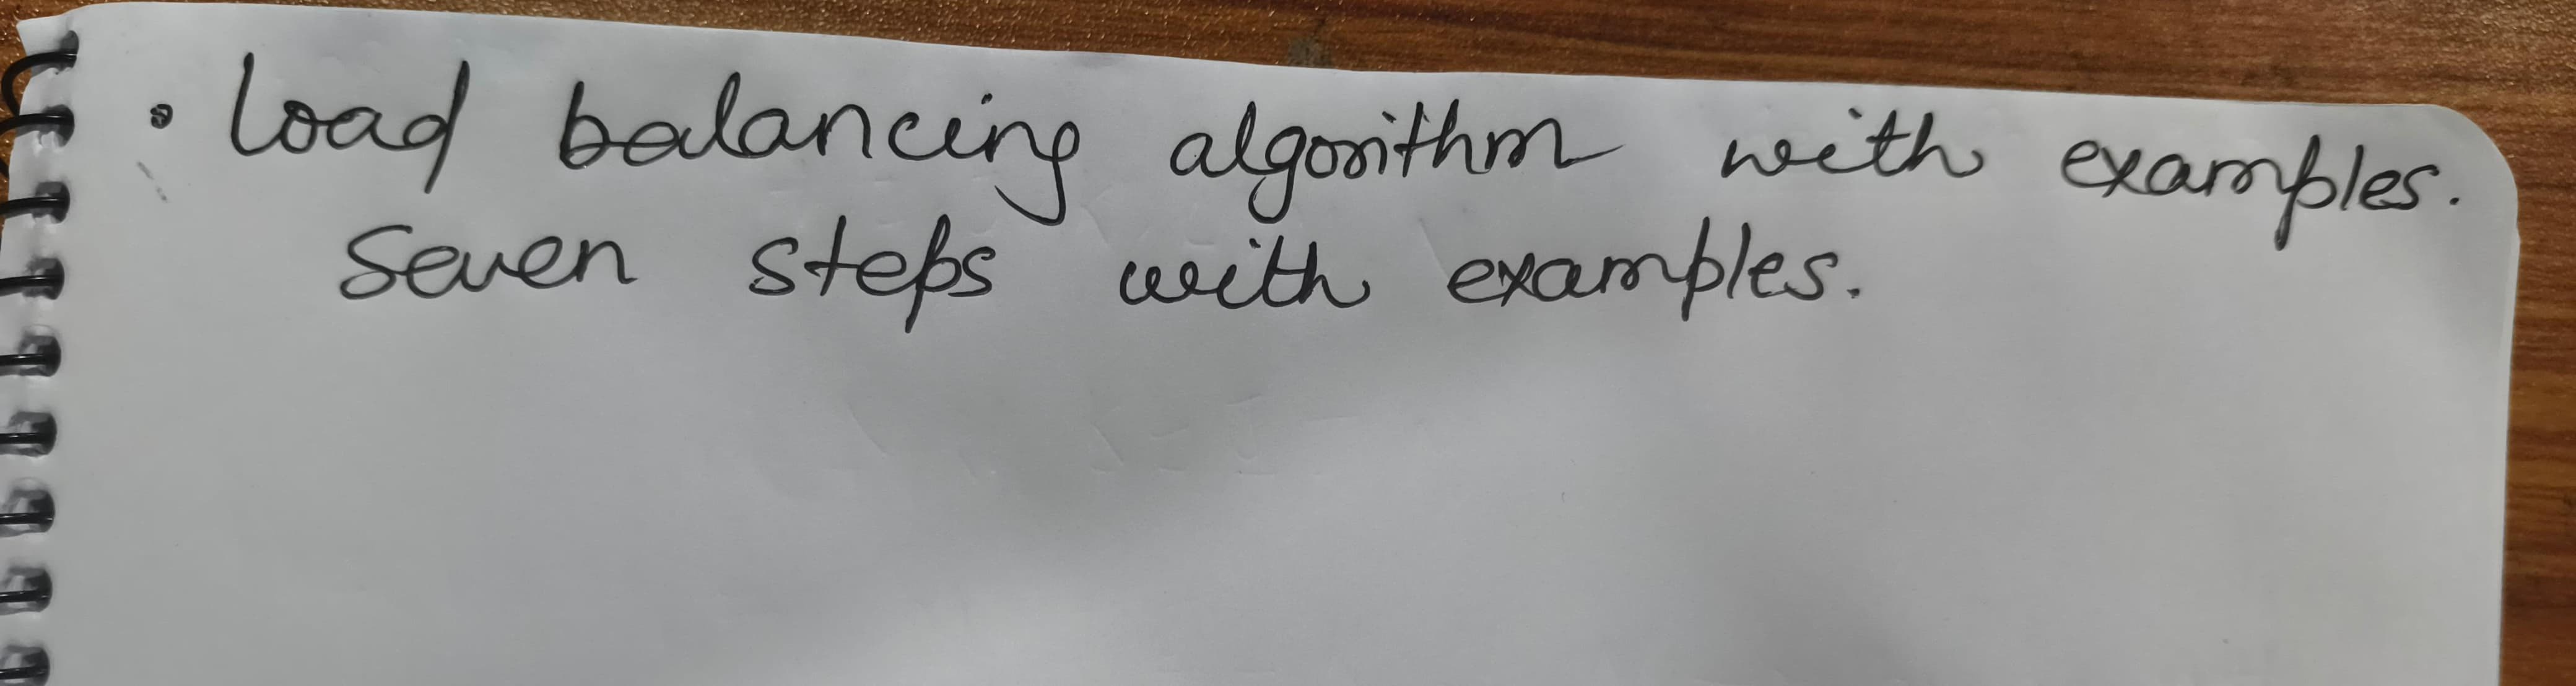 • Load balancing algorithm with examples.
Seven steps with examples.